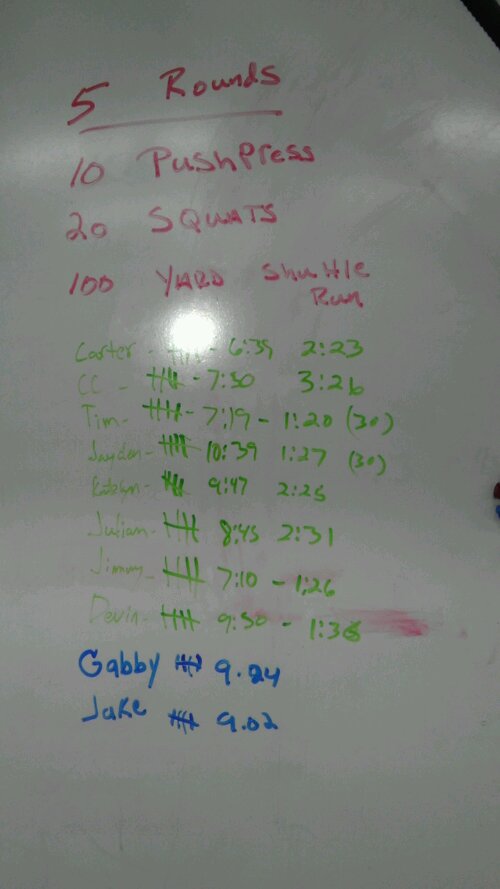 5 Rounds
10 PushPress
20 SQUATS
100 YARD Shuttle
Run
Carter - 6:39 2:23
CC - 7:50 3:26
Tim - 7:19 - 1:20 (30)
Jayden - 10:39 1:27 (30)
Katelyn - 9:47 2:25
Julian - 8:45 2:31
Jimmy 7:10 - 1:26
Devin - 9:50 - 1:36
Gabby 9.24
Jake 9.02